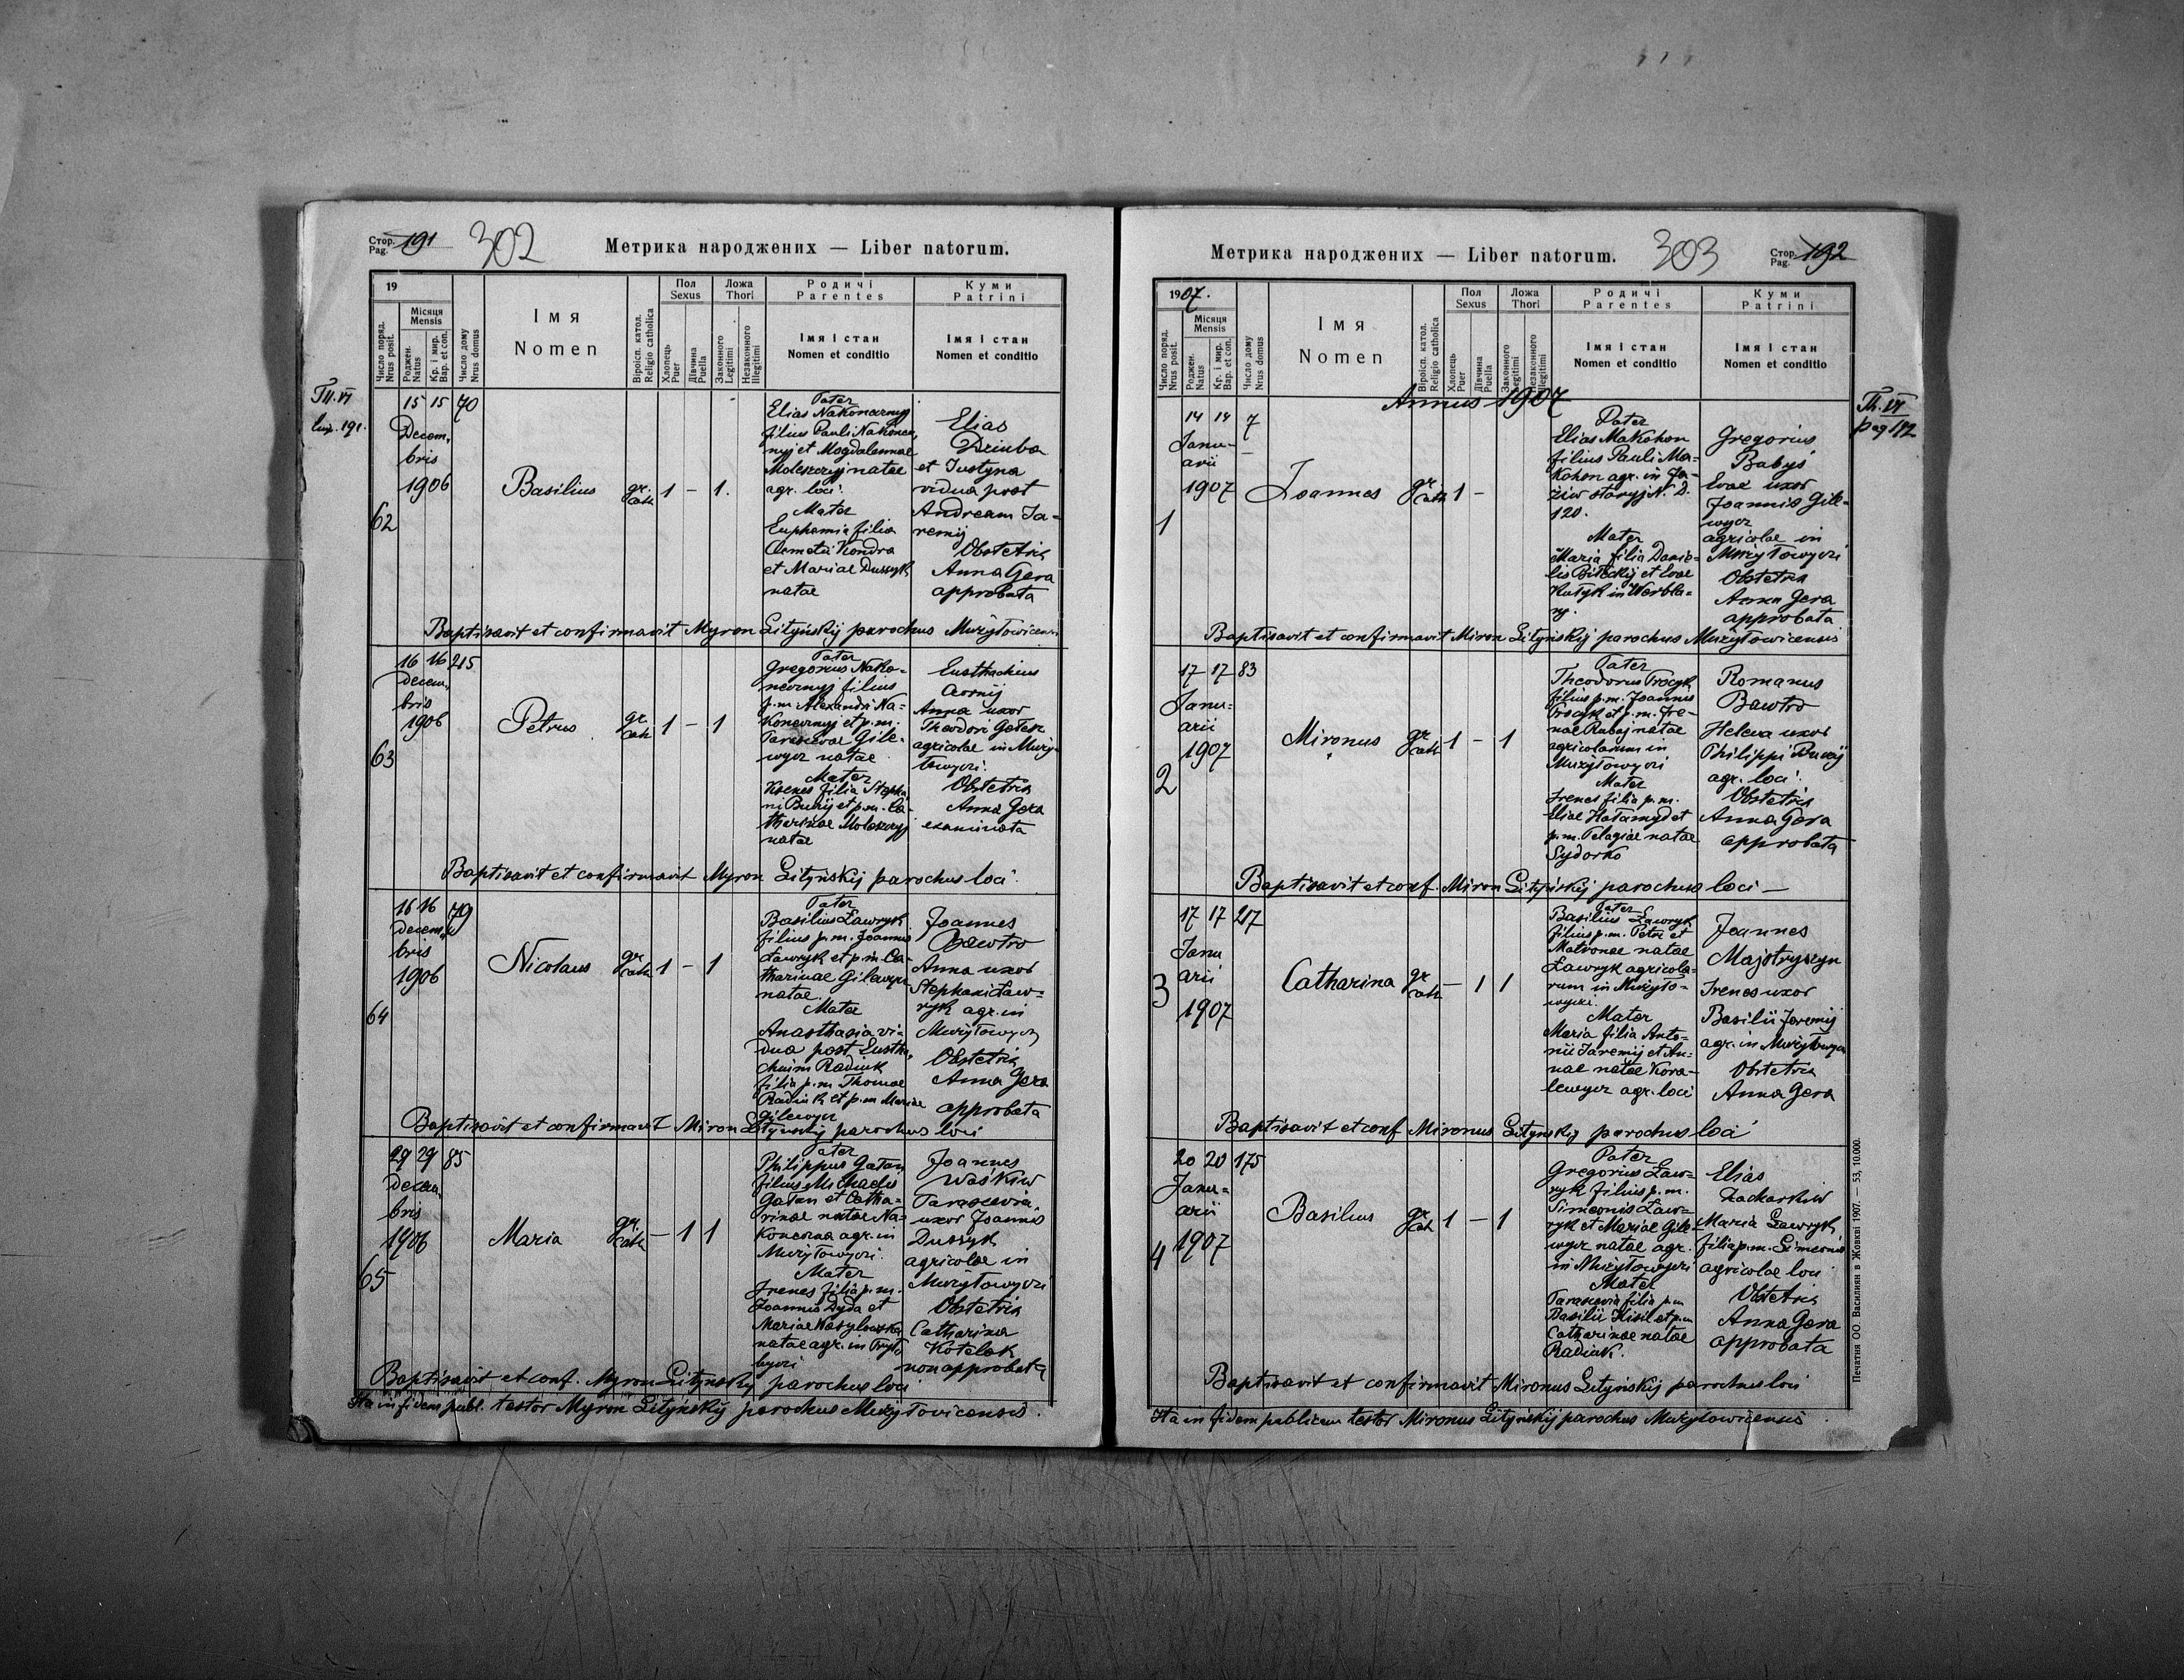 Стор. Pag. 191
302
Метрика народжених — Liber natorum.
19
Число поряд. Nrus posit.
Місяця Mensis
Роджен. Natus
Кр. і мир. Bap. et con.
Число дому Nrus domus
Імя Nomen
Віроісп. катол. Religio catholica
Пол Sexus
Хлопець Puer
Дівчина Puella
Ложа Thori
Законного Legitimi
Незаконного Illegitimi
Родичі Parentes
Імя і стан Nomen et conditio
Куми Patrini
Імя і стан Nomen et conditio
62
15 15 70
Decem,
bris
1906
Basilius
gr. cath
1 - 1.
Pater
Elias Nakonecznyj
filius Pauli Nakonecz,
nyj et Magdalennae
Moleszczyj natae
agr. loci.
Mater
Euphemia filia
Kondra
et Mariae Dussyk
natae
Elias
Dziuba
et Justyna
vidua post
Andream Ja=
remij
Obstetrix
Anna Gera
approbata
Baptisavit et confirmavit Myron Lityńskij parochus Mużyłowicensis
63
16 16 215
decem,
bris
1906
Petrus
gr. cath
1 - 1
Pater
Gregorius Nako=
necznyj filius
p.m. Alexandri Na=
konecznyj et p.m.
Parascevae Gile=
wycz natae
Mater
filia Stepha
ni Buczij et p.m. Ca=
tharinae
natae
Eusthachius
Anna uxor
Theodori
agricolae in Muży=
łowyczi.
Obstetrix
Anna Gera
examinata
Baptisavit et confirmavit Myron Lityńskij parochus loci.
64
16 16 79
decem,
bris
1906
Nicolaus
gr. cath
1 - 1
Pater
Basilius Ławryk
filius p.m. Joannis
Ławryk et p.m. Ca=
tharinae Gilewycz
natae.
Mater
Anasthasia vi=
dua post Eustha,
chium Radiuk
filia p.m. Thomae
Radiuk et p.m. Mariae
Gilewycz
Joannes
Bawtro
Anna uxor
Stephani Ław=
ryk agr. in
Mużyłowyczi
Obstetrix
Anna Gera
approbata
Baptisavit et confirmavit Miron Lityńskij parochus loci
65
29 29 85
decem,
bris
1906
Maria
gr. cath
- 1 1
Pater
Philippus Gałan
filius Michaelis
Gałan et Catha=
rinae natae Na=
koneczna agr. in
Mużyłowyczi.
Mater
Irenes filia p.m.
Joannis Dyda et
Mariae
natae agr. in
Joannes
Waśkiw
Parascevia,
uxor Joannis
Dussyk
agricolae in
Mużyłowyczi
Obstetrix
Catharina
Kotelak
non approbata
Baptisavit et conf. Myron Lityńskij parochus loci
Ita in fidem publ. testor Myron Lityńskij parochus Mużyłowicensis.
Метрика народжених — Liber natorum.
303
Стор. Pag. 192
1907.
Число поряд. Nrus posit.
Місяця Mensis
Роджен. Natus
Кр. і мир. Bap. et con.
Число дому Nrus domus
Імя Nomen
Віроісп. катол. Religio catholica
Пол Sexus
Хлопець Puer
Дівчина Puella
Ложа Thori
Законного Legitimi
Незаконного Illegitimi
Родичі Parentes
Імя і стан Nomen et conditio
Куми Patrini
Імя і стан Nomen et conditio
Annus 1907
1
14 14 7
Janu-
arii
1907
Joannes
gr. cath
1 -
Pater
Elias Makohon
filius Pauli Ma=
kohon agr. in Ja=
ziw staryj N. D.
120.
Mater
Maria filia Danie=
lis et Evae
in Werbla=
ny.
Gregorius
Babyś
Evae uxor
Joannis Gile=
wycz
agricolae in
Mużyłowyczi
Obstetrix
Anna Gera
approbata
Baptisavit et confirmavit Miron Lityńskij parochus Mużyłowicensis
2
17 17 83
Janu=
arii
1907
Mironus
gr. cath
1 - 1
Pater
Theodorus Trocyk
filius p.m. Joannis
Trocyk et p.m. Ire=
nae natae
agricolarum in
Mużyłowyczi
Mater
Irenes filia p.m.
Eliae et
p.m. Pelagiae natae
Sydorko
Romanus
Bawtro
Helena uxor
Philippi
agr. loci.
Obstetrix
Anna Gera
approbata
Baptisavit et conf. Miron Lityńskij parochus loci —
3
17 17 217
Janu
arii
1907
Catharina
gr. cath
- 1 1
Pater
Basilius Ławryk
filius p.m. Petri et
Matronae natae
Ławryk agricola=
rum in Mużyło=
wyczi.
Mater
Maria filia Anto=
nii Jaremij et An=
nae natae Kora=
lewycz agr. loci
Joannes
Majstryszyn
Irenes uxor
Basilii Jaremij
agr. in Mużyłowyczi
Obstetrix
Anna Gera
Baptisavit et conf Mironus Lityńskij parochus loci
4
20 20 175
Janu=
arii
1907
Basilius
gr. cath
1 - 1
Pater
Gregorius Ław=
ryk filius p.m.
Simeonis Ław=
ryk et Mariae Gile
wycz natae agr.
in Mużyłowyczi
Mater
Parascevia filia p.m.
Basilii Kisil et p.m
Catharinae natae
Radiuk.
Elias
Zacharkiw
Maria Ławryk
filia p.m. Simeonis
agricolae loci
Obstetrix
Anna Gera
approbata
Baptisavit et confirmavit Mironus Lityńskij parochus loci
Ita in fidem publicam testor Mironus Lityńskij parochus Mużyłowicensis
Th. VI
pag 192
Печатня ОО. Василиян в Жовкві 1907. — 53, 10.000.